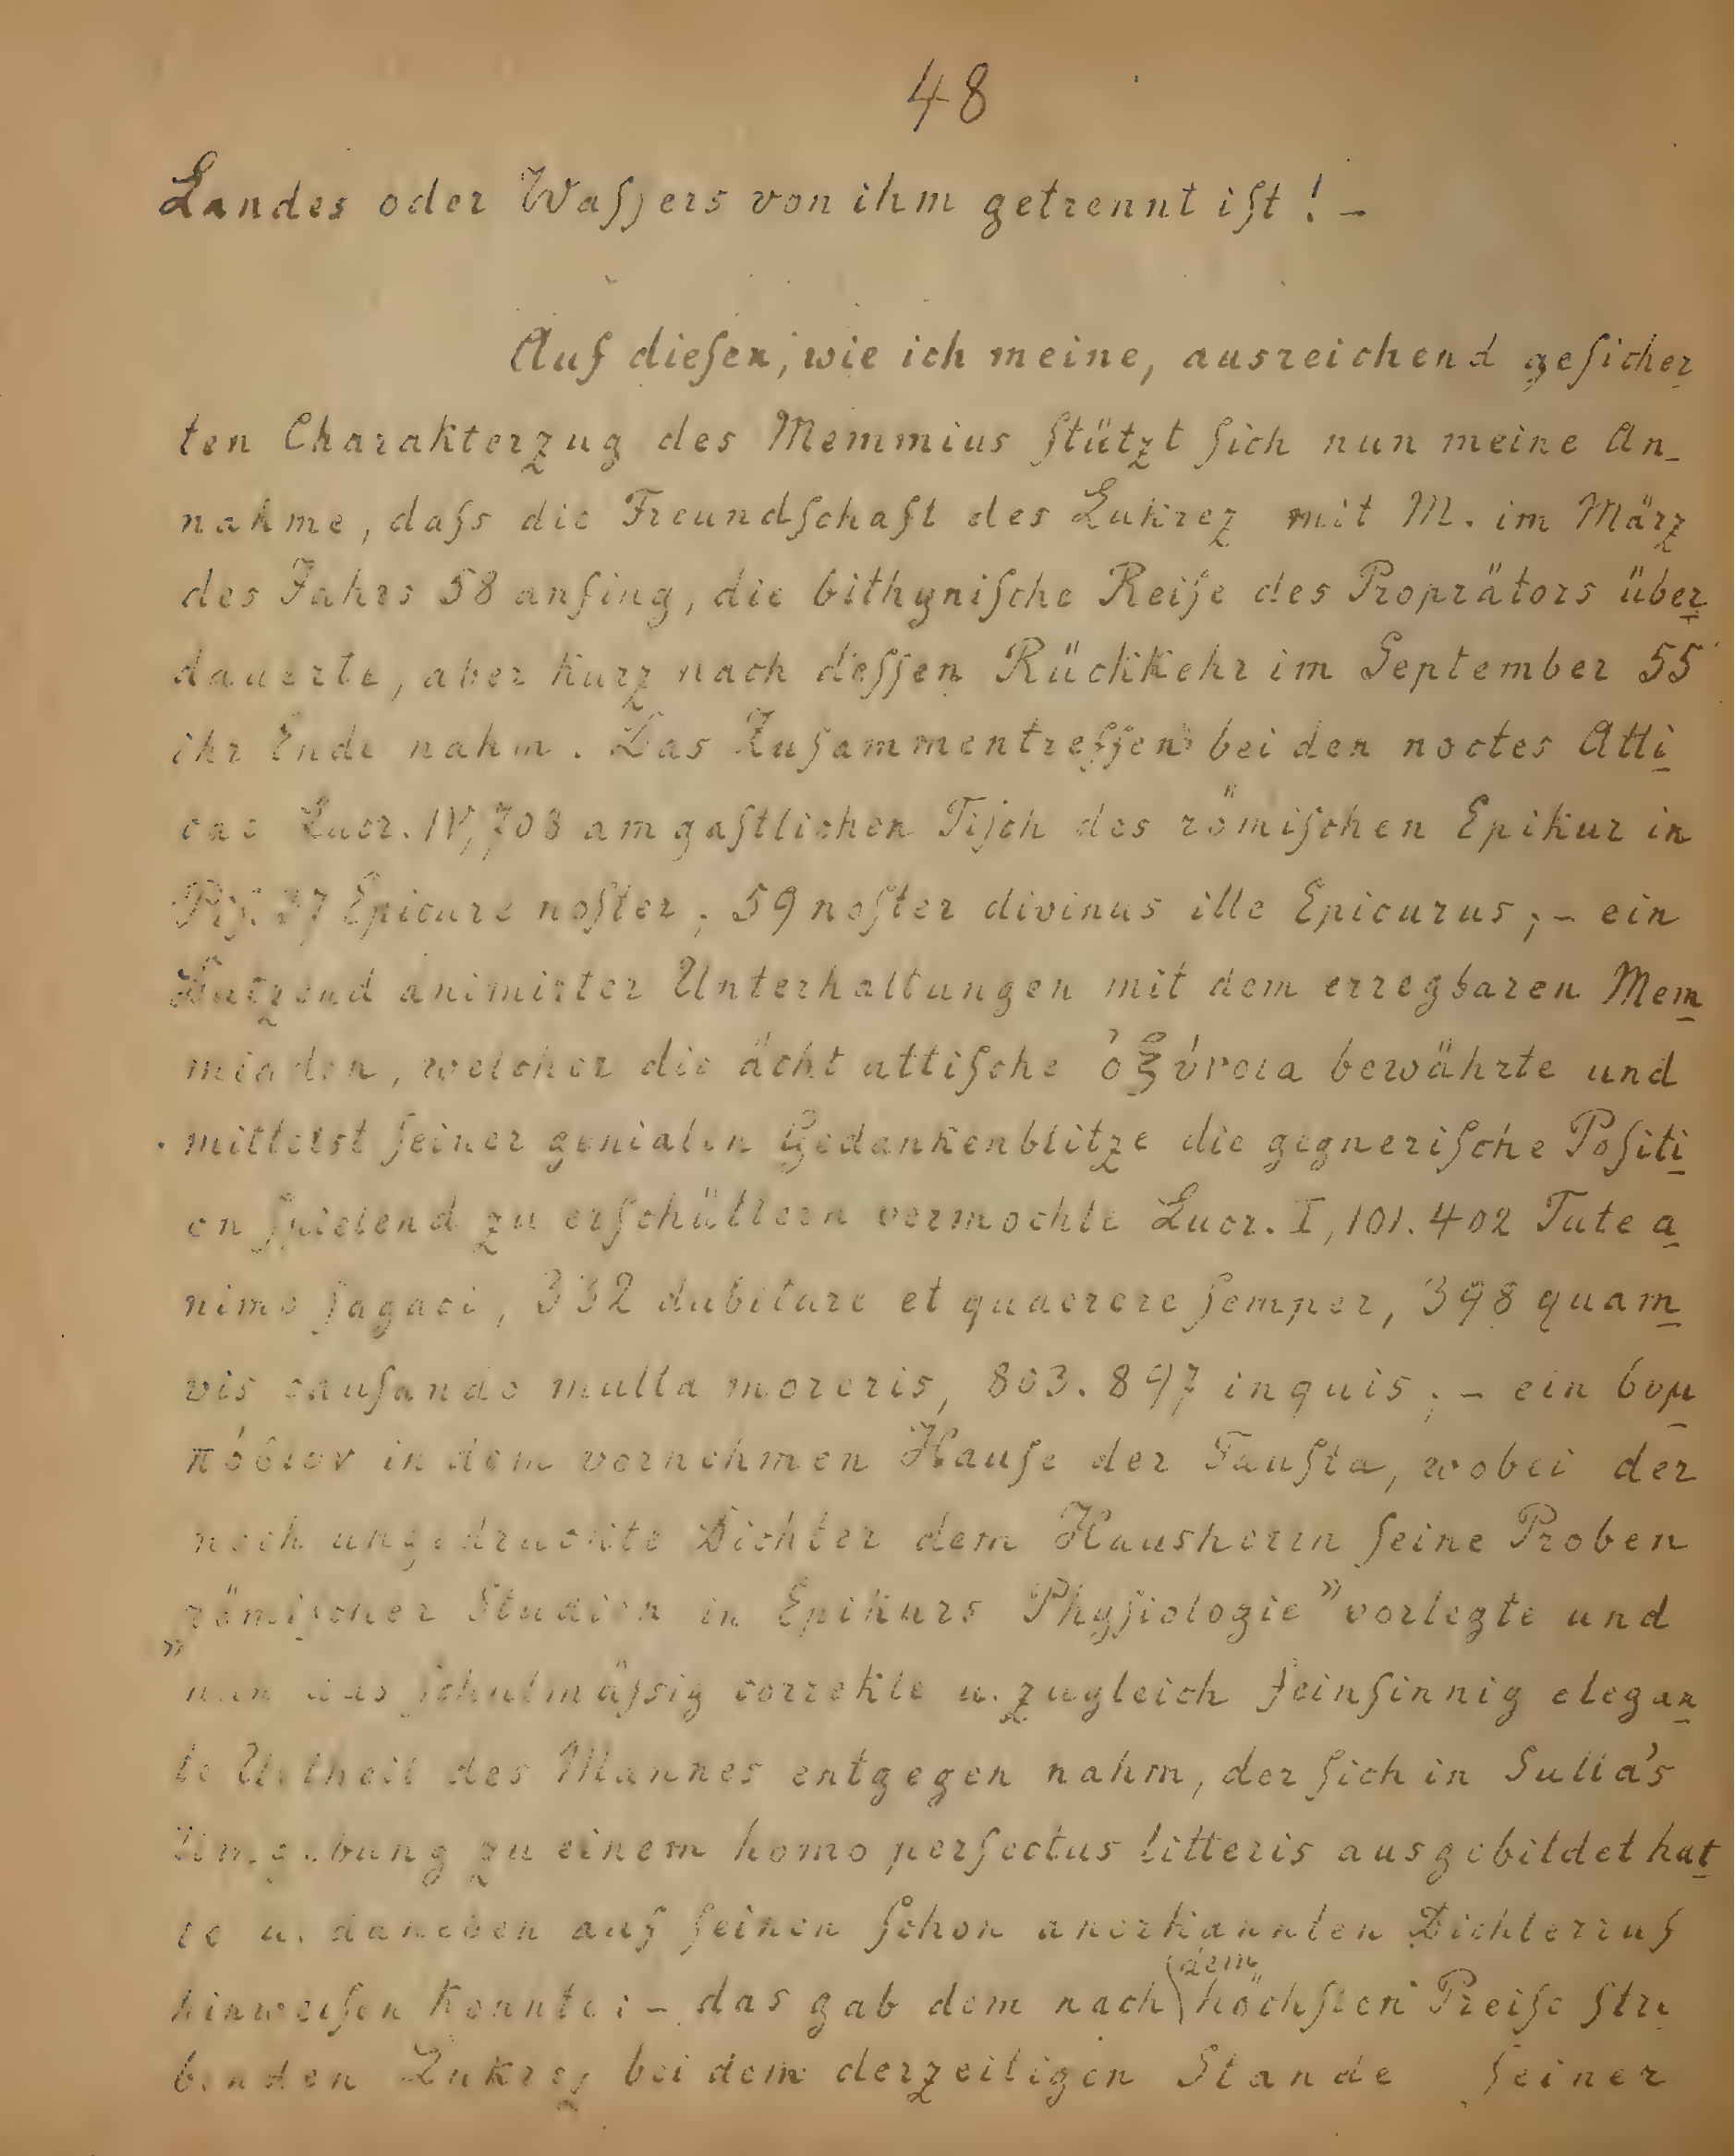 48
Landes oder Waſſers von ihm getrennt iſt! –
Auf dieſen, wie ich meine, ausreichend geſicher
ten Charakterzug des Memmius ſtützt ſich nun meine An_
nahme, daſs die Freundſchaft des Lukrez mit M. im März
des Jahrs 58 anfing, die bithyniſche Reiſe des Proprätors über
dauerte, aber kurz nach deſſen Rückkehr im September 55
ihr Ende nahm. Das Zuſammentreffen bei den noctes Atti
cae Lucr. IV, 708 am gaſtlichen Tiſch des römiſchen Epikur in
Piſ. 37 Epicure noſter, 59 noſter divinus ille Epicurus; – ein
Dutzend animirter Unterhaltungen mit dem erregbaren Mem
miaden, welcher die ächt attiſche ὀξύνοια bewährte und
mittelst ſeiner genialen Gedankenblitze die gegneriſche Poſiti
on ſpielend zu erſchüttern vermochte Lucr. I, 101. 402 Tute a
nimo ſagaci, 332 dubitare et quaerere ſemper, 398 quam
vis cauſando multa moreris, 803. 897 inquis; – ein ϭυμ
πόϭιον in dem vornehmen Hauſe der Fauſta, wobei der
noch ungedruckte Dichter dem Hausherrn ſeine Proben
„römiſcher Studien in Epikurs Phyſiologie” vorlegte und
nun das ſchulmäſsig correkte u. zugleich feinſinnig elegan
te Urtheil des Mannes entgegen nahm, der ſich in Sulla's
Umgebung zu einem homo perfectus litteris ausgebildet hat
te u. daneben auf ſeinen ſchon anerkannten Dichterruf
hinweiſen konnte: – das gab dem nach dem höchſten Preiſe ſtre
benden Lukrez bei dem derzeitigen Stande ſeiner